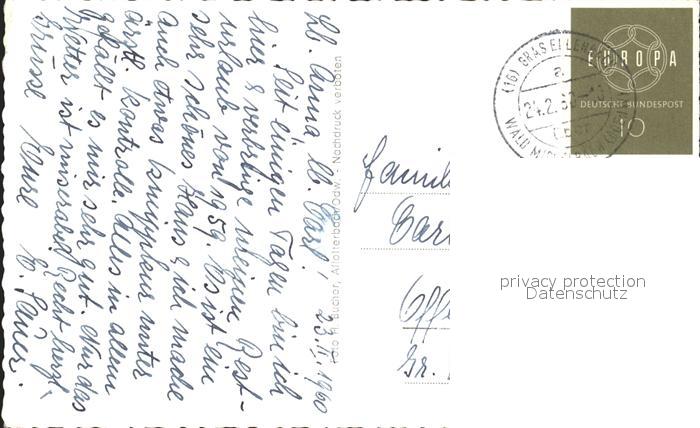 23.II.1960
Lb. Anna, lb. Carl,
Seit einigen Tagen bin ich
hier & verbringe meinen Rest-
urlaub von 1959. Es ist ein
sehr schönes Haus & ich mache
auch etwas kneippkur unter
ärztl. kontrolle. Alles in allem
gefällt es mir sehr gut. Nur das
Wetter ist miserabel. Recht herzl.
Grüsse Eure
Foto H. Bucher, Allerlerbach/Odw. - Nachdruck verboten
Famil
Car
Offe
Gr.
(16) GRAS ELLEN
a
24.2.60
WALD-MI
EUROPA
DEUTSCHE BUNDESPOST
10
privacy protection
Datenschutz